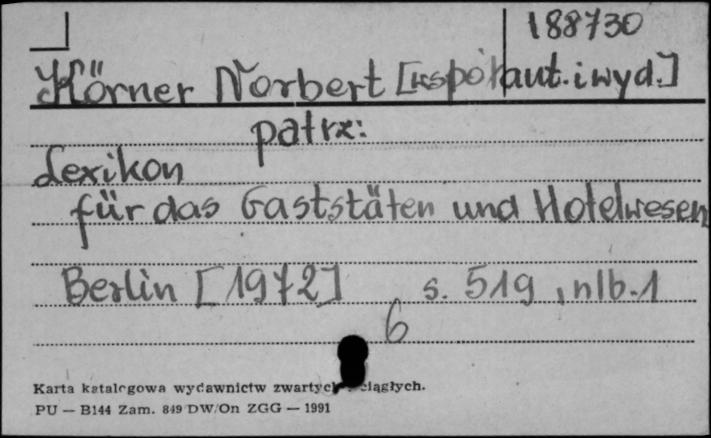 188730
Körner Norbert [współaut. i wyd.]
patrz:
Lexikon
für das Gaststäten und Hotelwesen
Berlin [1972] s. 519, nlb. 1
6
Karta katalogowa wydawnictw zwartych ciągłych.
PU — B144 Zam. 849 DW/On ZGG — 1991